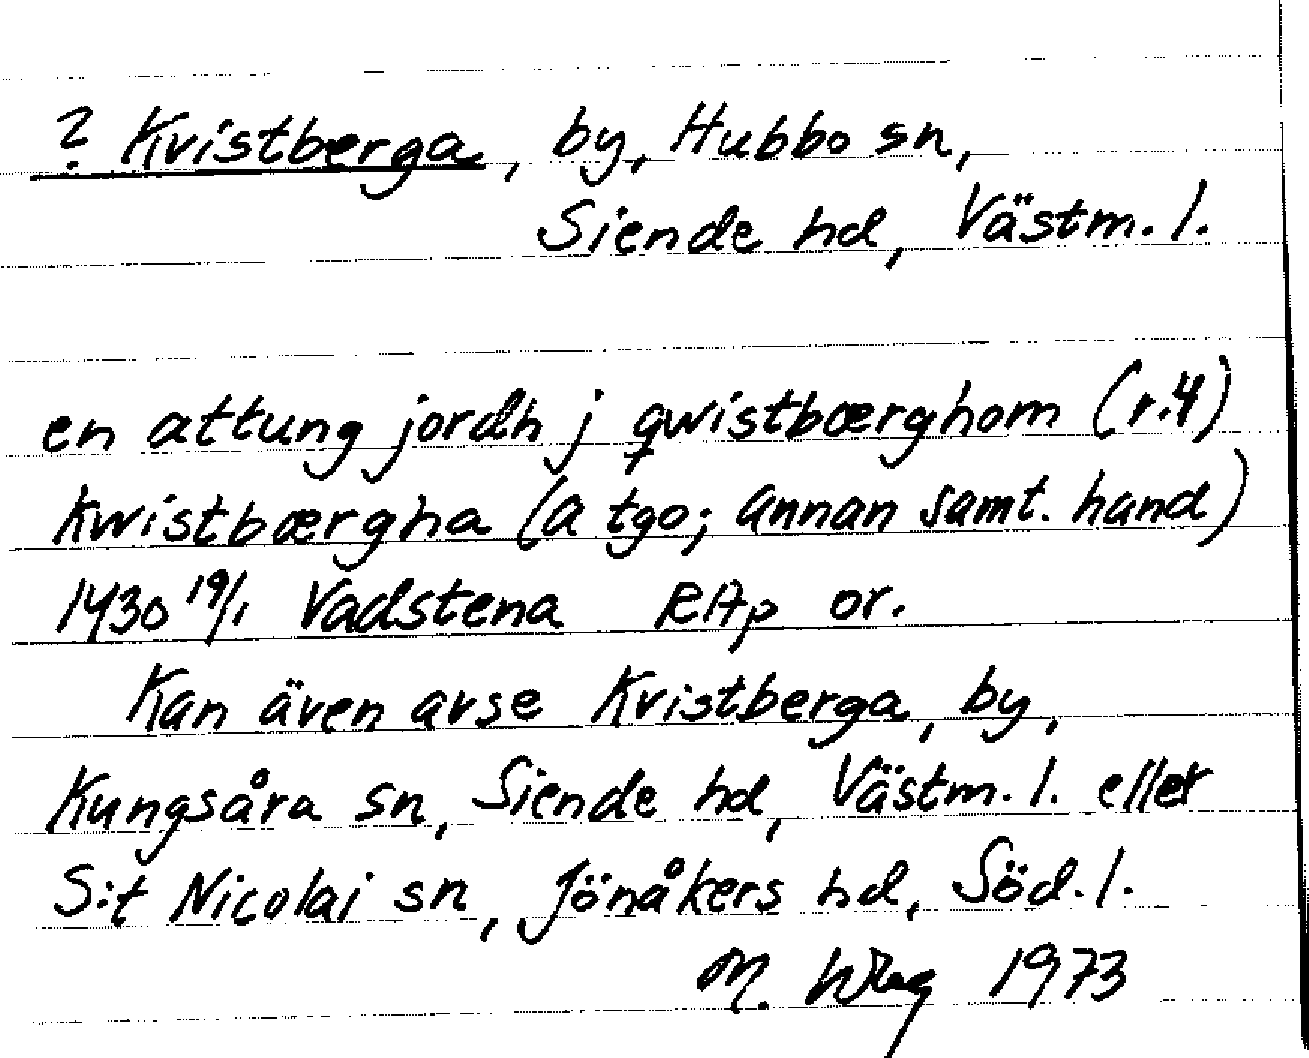 ? Kvistberga, by, Hubbo sn,
Siende hd, Västm. l.
en attung jordh j qwistbærghom (r.4)
Kwistbærgha (a tgo; annan samt. hand)
1430 19/1 Vadstena RAp or.
Kan även avse Kvistberga, by,
Kungsåra sn, Siende hd, Västm. l. eller
S:t Nicolai sn, Jönåkers hd, Söd. l.
M. 1973